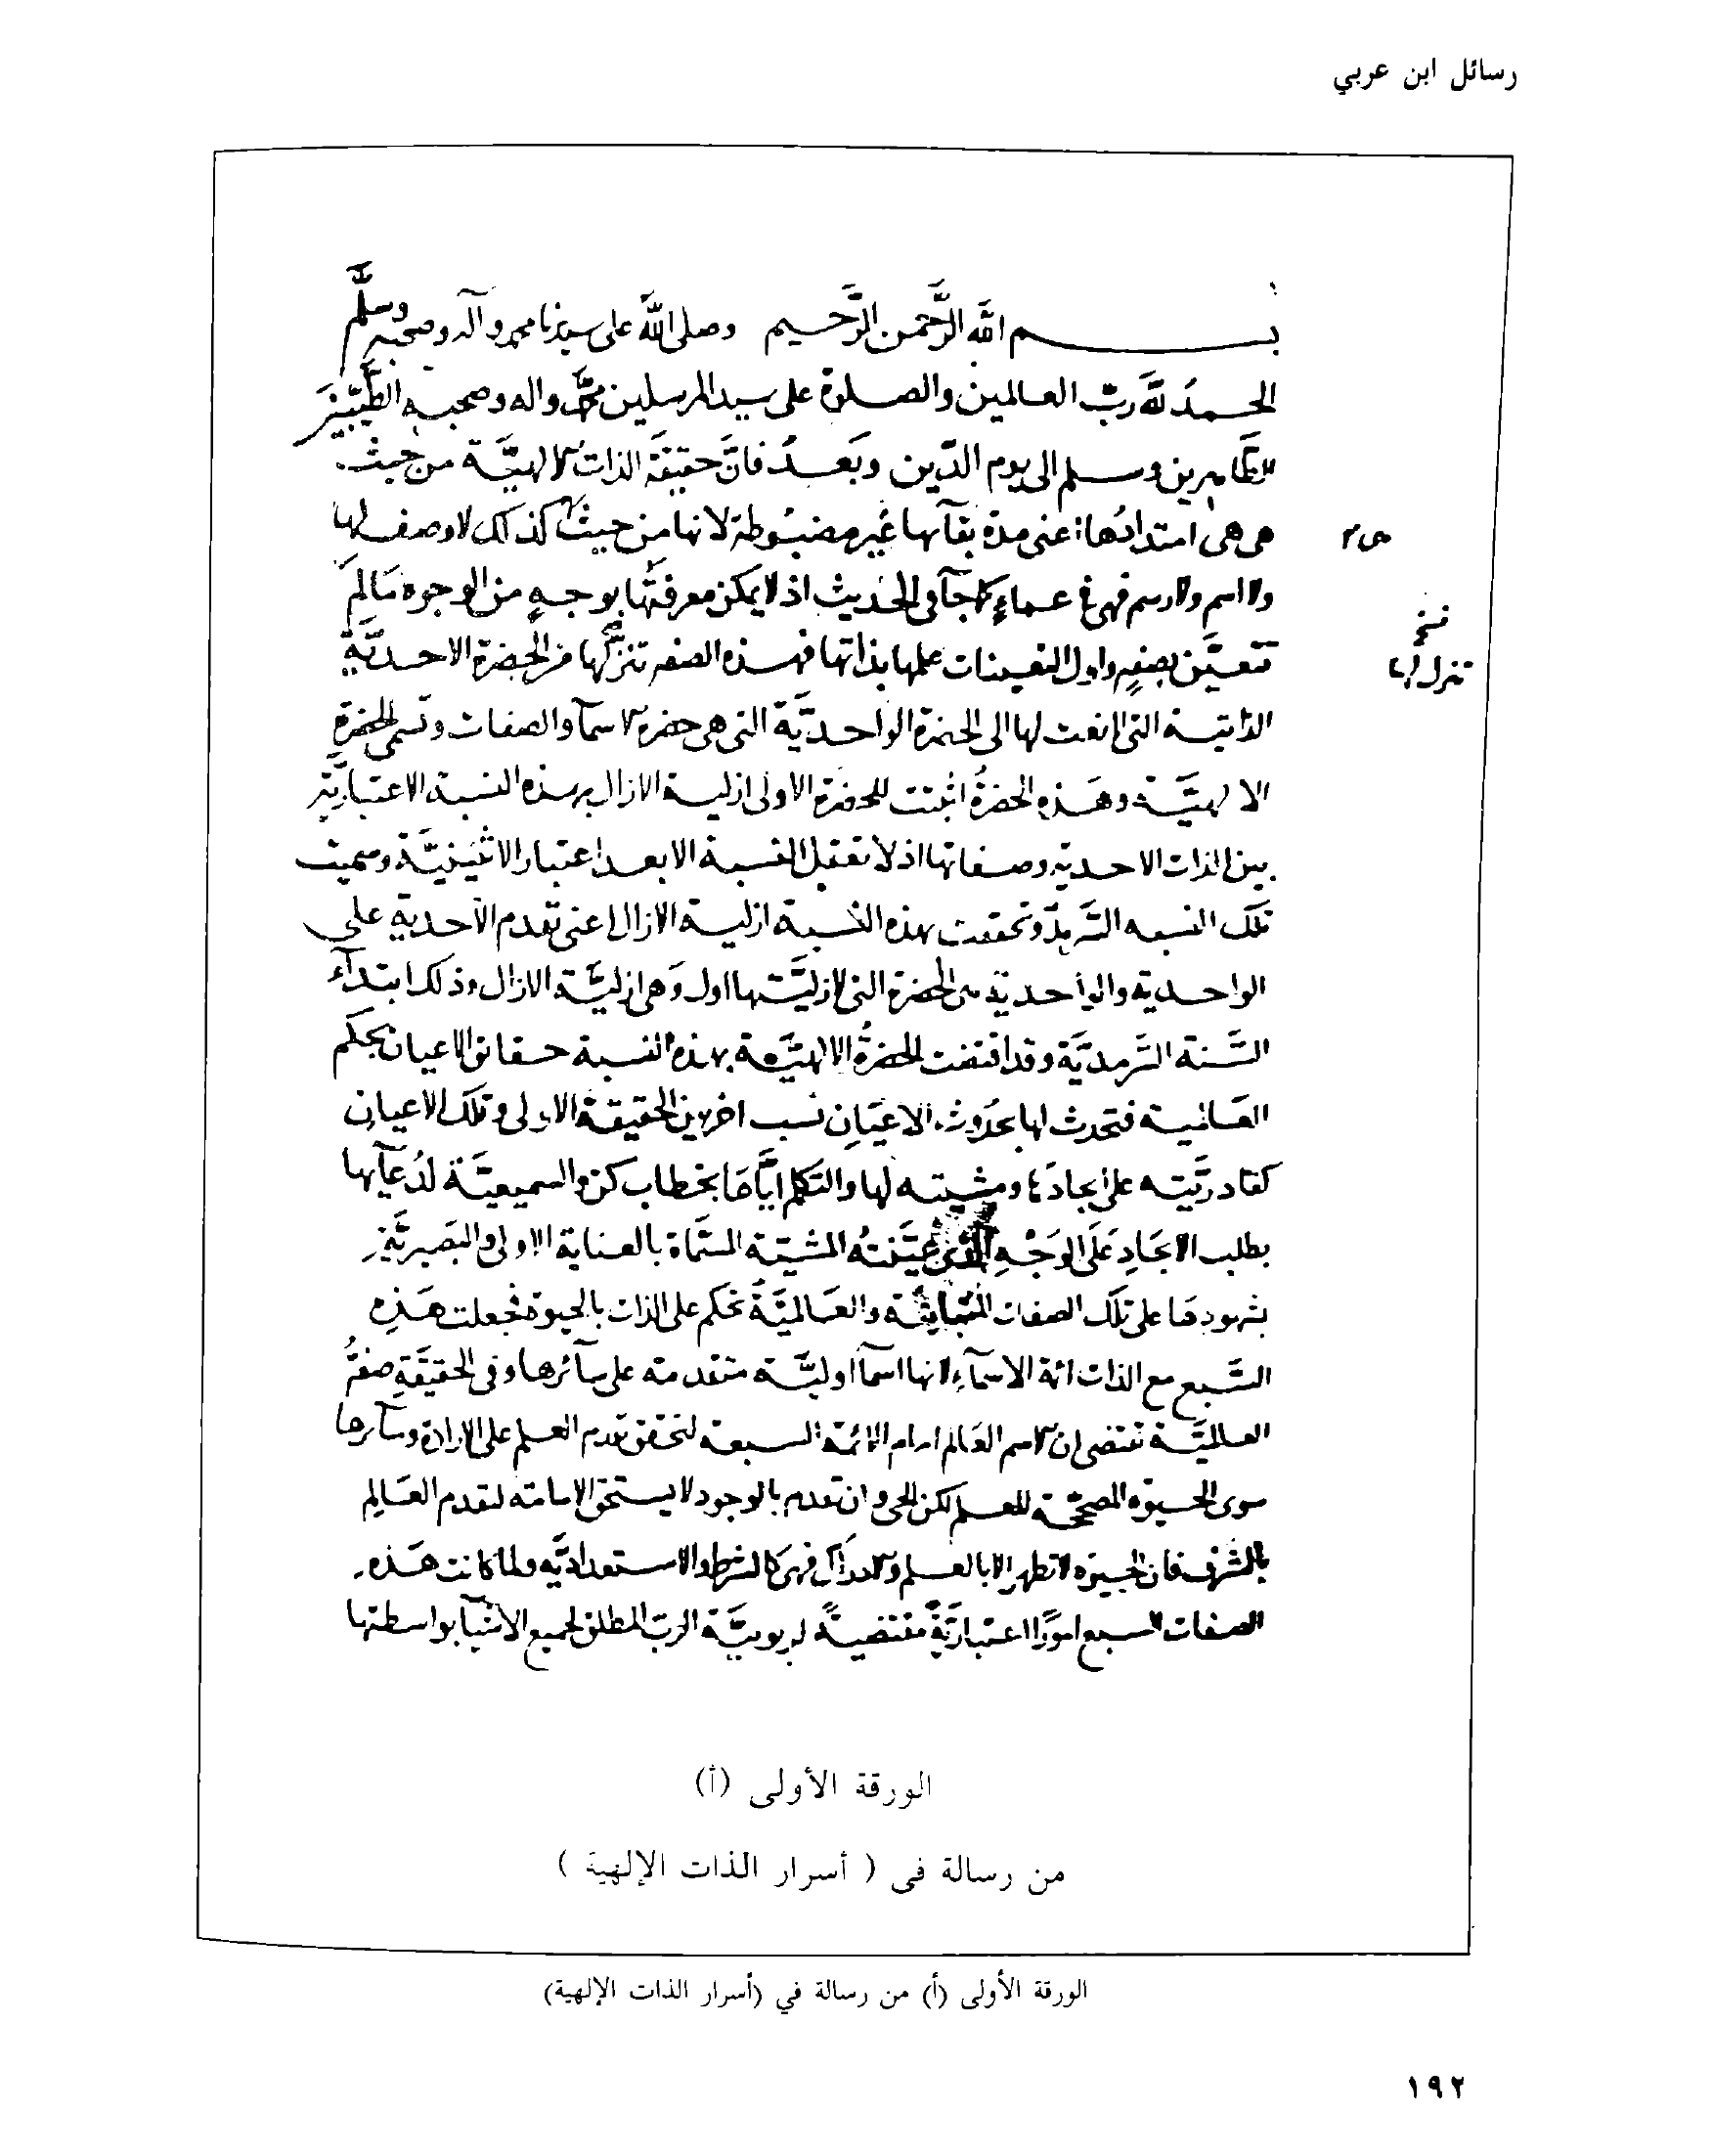 رسائل ابن عربي
بسم الله الرَّحمن الرَّحيم وصلى الله على سيدنا محمد وآله وصحبه وسلَّم
الحمد لله ربّ العالمين والصلوة على سيد المرسلين محمد واله وصحبه الطَّيّبين
الطَّاهرين وسلم الى يوم الدّين وبَعدُ فانَّ حقيقة الذات الالهيَّة من حيث
هى هى امتدادُها اعنى مدة بقآئها غير مضبُوطة لانها من حيث كذلك لا وصف لها
هى م
ولا اسم ولا رسم فهى فى عماءٍ كما جآ فى الحديث اذ لا يمكن معرفتُها بوجهٍ من الوجوه مَا لَم
تتعيَّن بصفةٍ واول التعينات علمها بذاتها فهذه الصفه تنزّلها من الحضرة الاحديَّةِ
نسخ
تنزل لها
الذاتية التى لا نعت لها الى الحضرة الواحديَّة التى هى حضرة الاسمآ والصفات وتسمى الحضرة
الالهيَّة وهَذه الحضرةُ اثبتت للحضرة الاولى ازلية الازال بهذه النسبة الاعتباريَّة
بين الذات الاحديه وصفاتها اذ لا تعقل النسبة الا بعد اعتبار الاثنينيَّة وسميت
تلك النسبه السَّرمد وتحققت بهذه النسبة ازلية الازال اعنى تقدم الآحدية على
الواحدية والواحدية هى الحضرة التى لازليَّتها اول وَهى ازليَّة الازال وذلك ابتدآء
السَّنة السَّرمديَّة وقد اقتضت الحضرةُ الالهيَّة بهذه النسبة حقائق الاعيان بحكم
العَالمية فتحدث لها بحُدوث الاعيَانِ نسب اخر بين الحقيقة الاولى وتلك الاعيان
كقادريَّته على ايجادها ومشيته لها والتكلم ايَّاهَا بخطاب كن والسميعيَّة لدُعآئها
بطلب الايجَادِ عَلَى الوَجْهِ الذى عيَّنتهُ المشيّة المسَّماة بالعناية الاولى والبَصيريَّة
بشهودهَا على تلك الصفات والعَالميَّةُ تحكم على الذات بالحيوة فجعلت هَذِه
السَّبع مع الذات ائمة الاسمآءِ لانها اسمآ اوليَّة متقدمة على سآئرها وفى الحقيقَةِ صفةُ
العالميَّة تقتضى ان الاسم العَالم امام الائمّة السبعة لتحقق تقدم العلم على الارادة وسآئرها
سوى الحيوة المصحّحة للعلم لكن الحى وان تقدم بالوجود لا يستحق الامامة لتقدم العَالِم
بالشرف فان الحيوة لا تظهر الا بالعلم والادراك فهى كالشرط والاستعداديَّه ولما كانت هَذه
الصفات السبع امورًا اعتباريَّةً مقتضيةً لربوبيَّة الربّ المطلق لجميع الاشيآ بواسطتها
الورقة الأولى (أ)
من رسالة فى ( أسرار الذات الإلهية )
الورقة الأولى (أ) من رسالة في (أسرار الذات الإلهية)
١٩٢